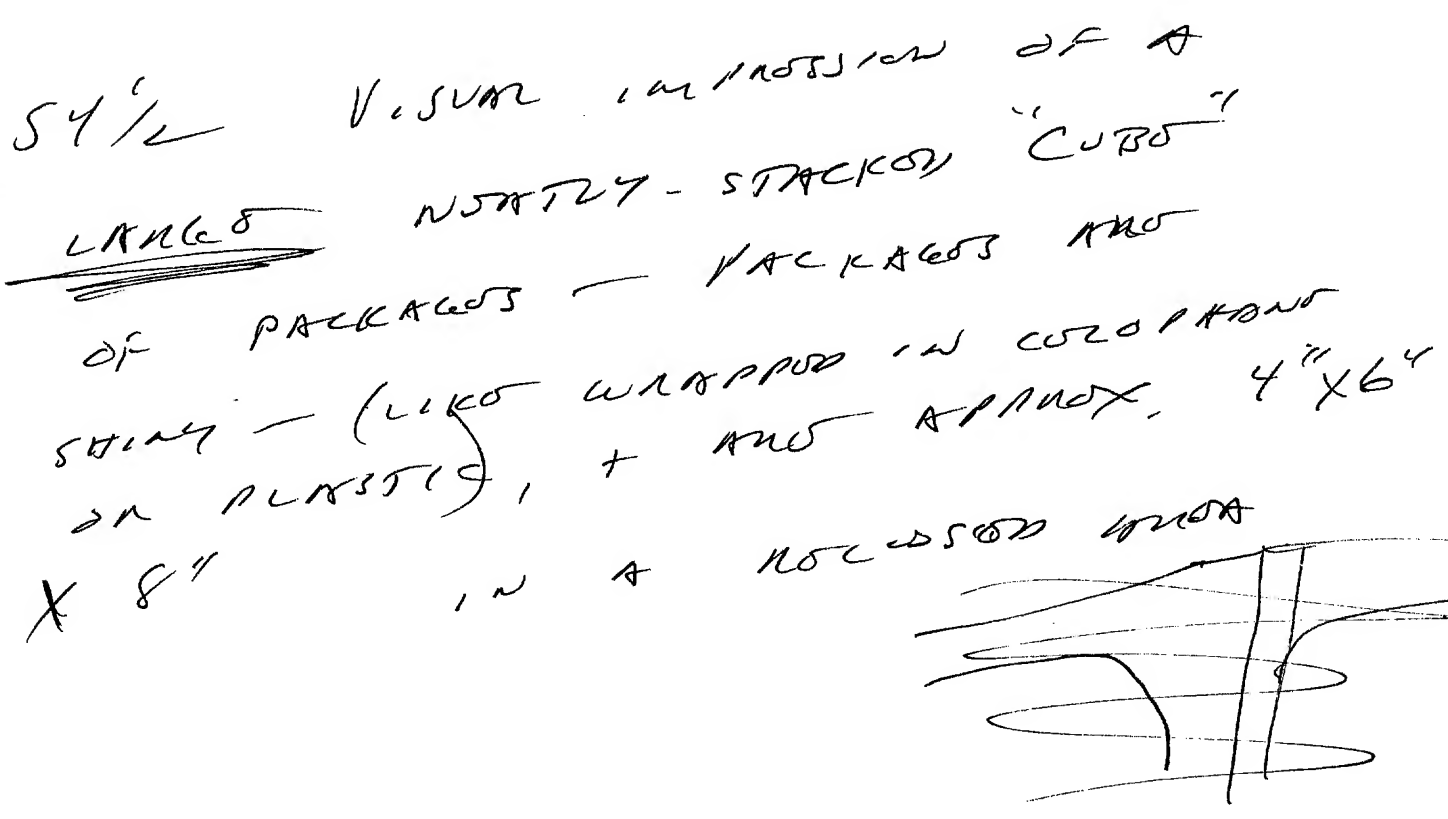 54 1/2 VISUAL IMPRESSION OF A
LARGE NEATLY-STACKED "CUBE"
OF PACKAGES — PACKAGES ARE
SHINY — (LIKE WRAPPED IN CELOPHANE
OR PLASTIC), + ARE APPROX. 4"X6"
X 8" IN A AREA